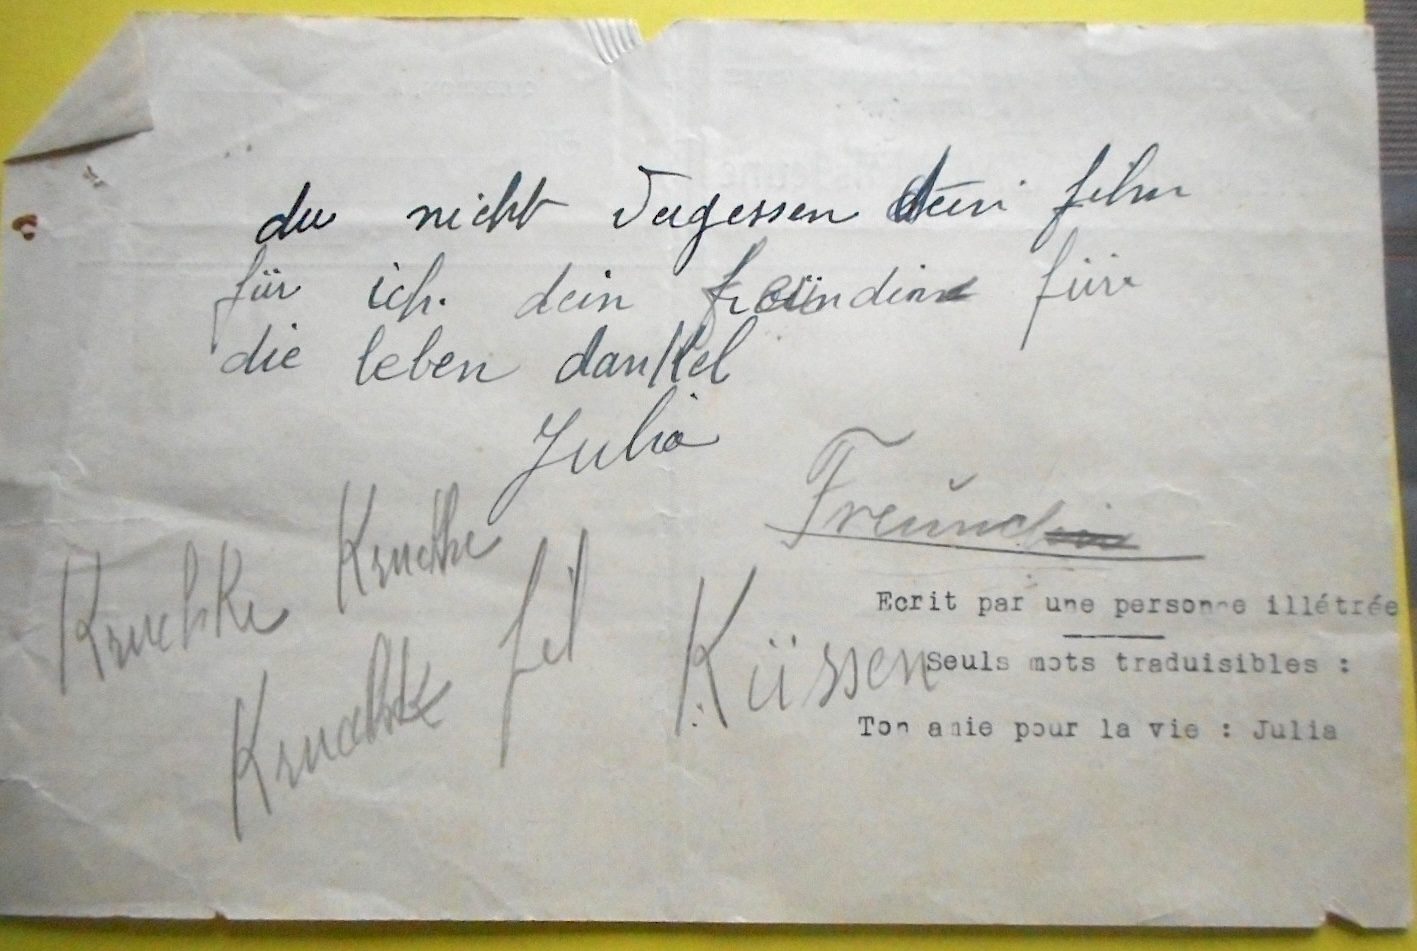 du nicht Vergessen dein film
für ich. dein freündin für
die leben dankel
Julia
Freundin
Küssen
Ecrit par une personne illétrée
Seuls mots traduisibles :
Ton amie pour la vie : Julia